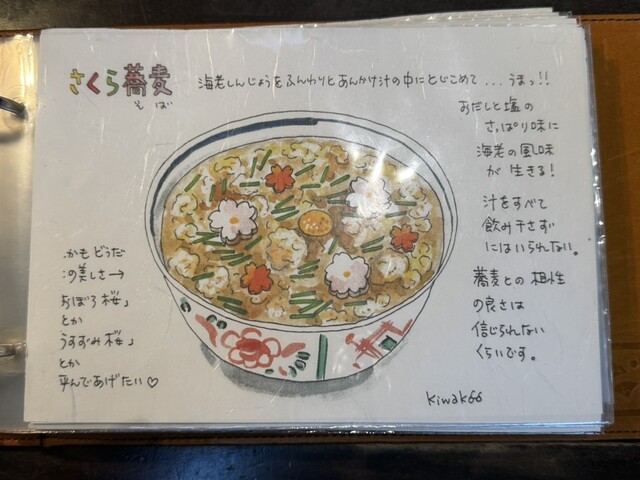 さくら蕎麦
そば
海老しんじょうをふんわりとあんかけ汁の中にとじこめて...うまっ!!
おだしと塩の
さっぱり味に
海老の風味
が生きる!
汁をすべて
飲み干さず
にはいられない。
蕎麦との相性
の良さは
信じられない
くらいです。
かもどうだ
この美しさ→
おぼろ桜」
とか
うすずみ桜」
とか
呼んであげたい♡
kiwakoo